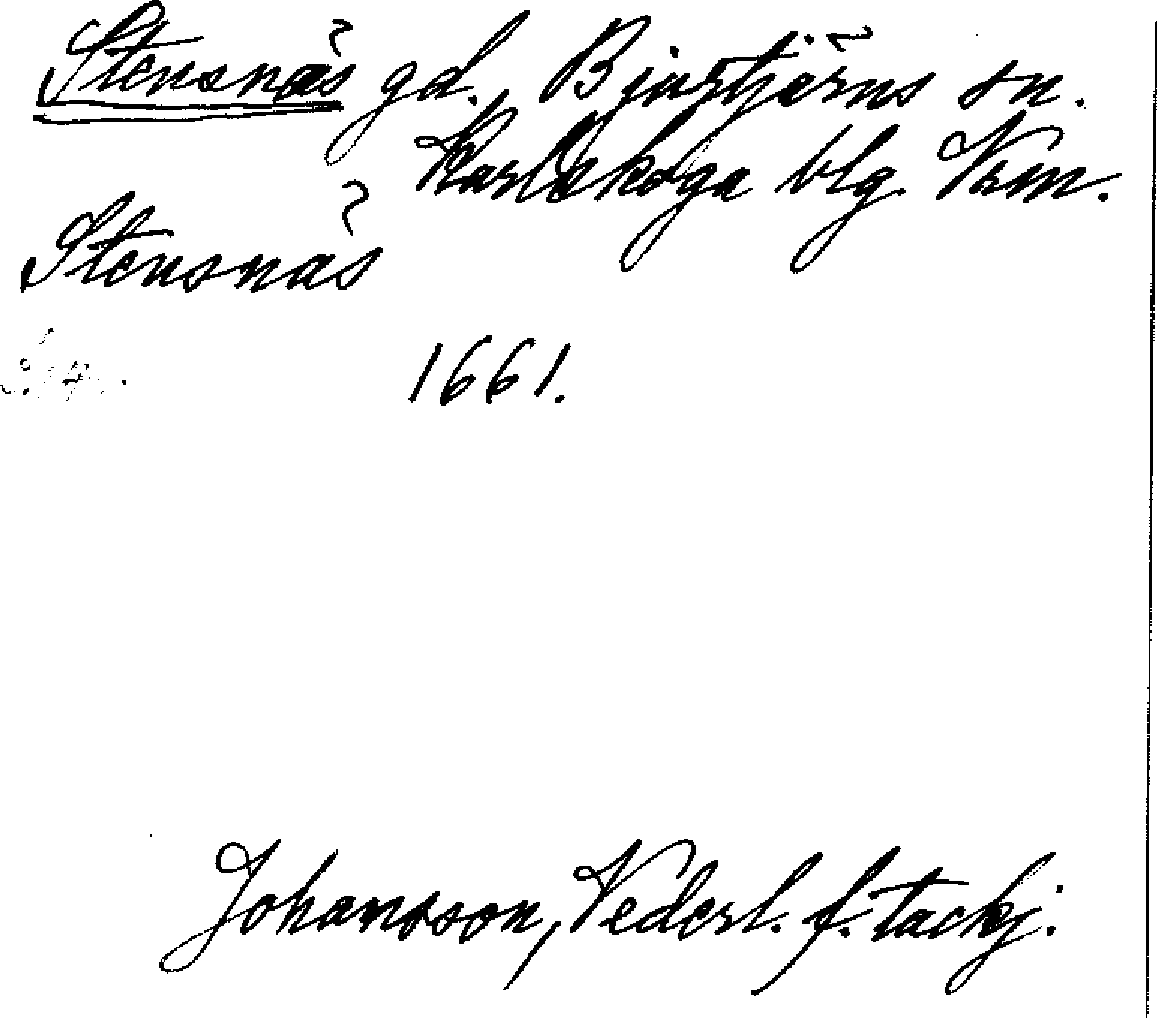 Stensnäs gd. Bjurtjärns sn.
Karlskoga blg. Vrm.
Stensnäs
1661.
Johansson, Vederl. f. tackj.